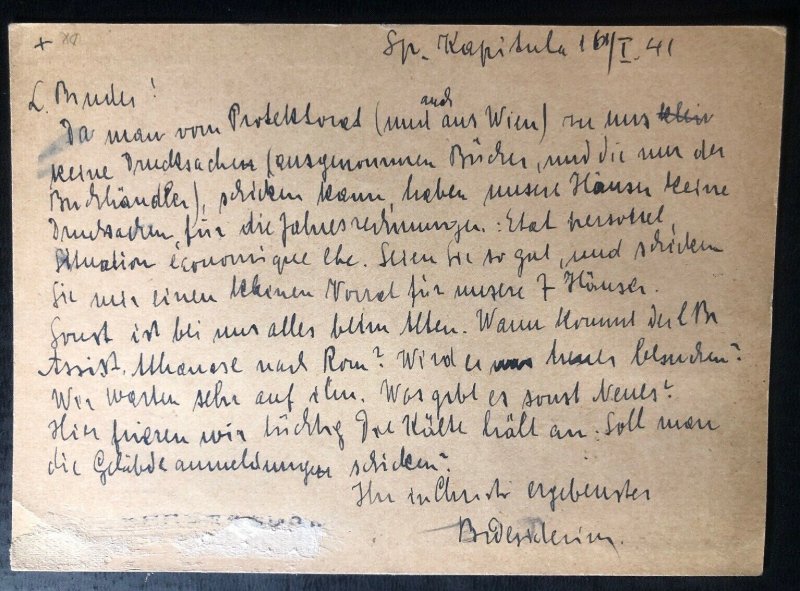 Sp. Kapitula 16/I. 41
L. Bruder!
Da man vom Protektorat (und auch aus Wien) zu uns
keine Drucksachen (ausgenommen Bücher, und die nur der
Buchhändler), schicken kann, haben unsere Häuser keine
Drucksachen für die Jahresrechnungen: Etat personel,
Situation économique etc. Seien Sie so gut, und schicken
Sie mir einen kleinen Vorrat für unsere 7 Häuser.
Sonst ist bei uns alles beim Alten. Wann kommt der l Br
Assist. Athanase nach Rom? Wird er uns heuer besuchen?
Wir warten sehr auf ihn. Was gibt es sonst Neues?
Hier frieren wir tüchtig Die Kälte hält an. Soll man
die Gelübdeanmeldungen schicken?
Ihr in Christo ergebenster
Br Desiderius.